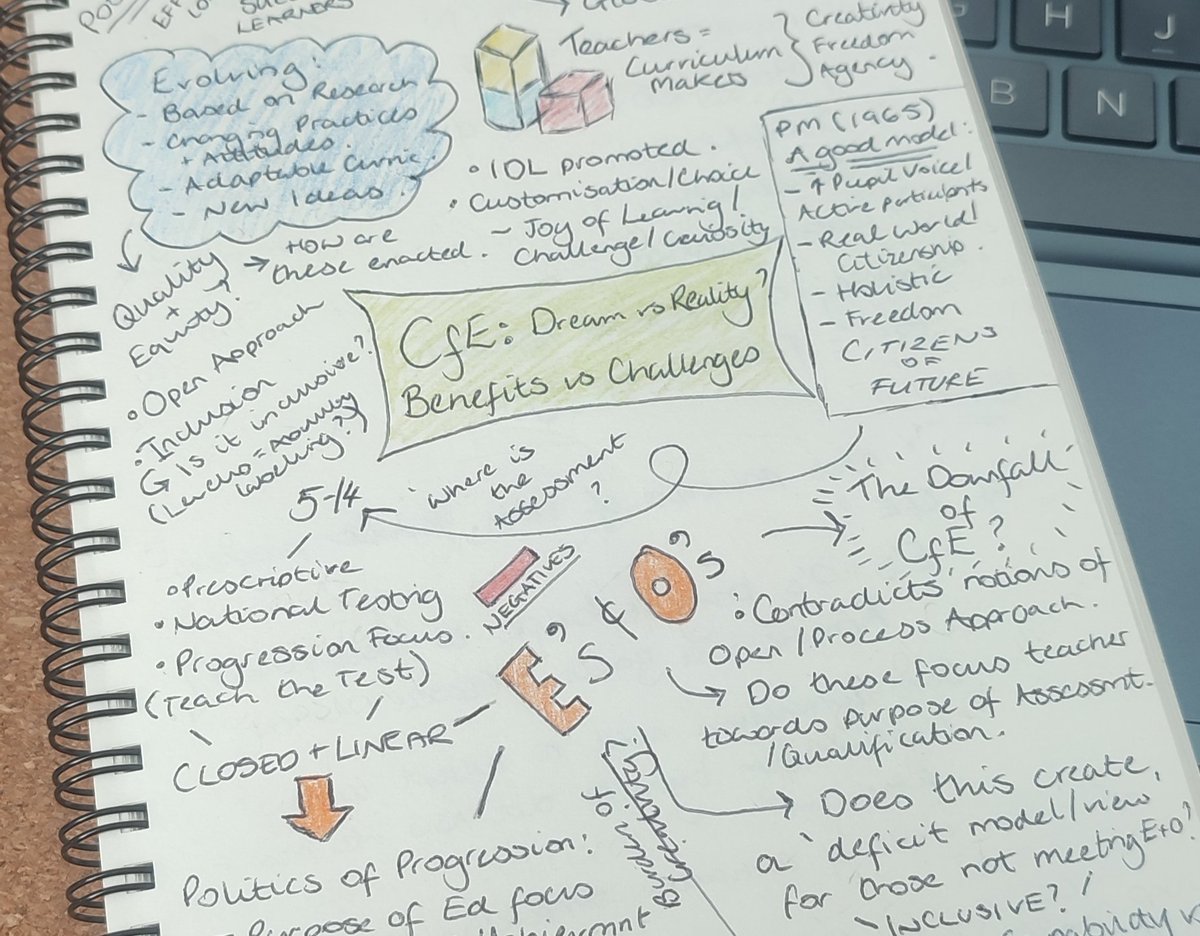 LEARNERS
Evolving:
- Based on Research
- Changing Practices
+ Attitudes.
- Adaptable Curric.
- New Ideas.
Teachers =
Curriculum
Makers
Creativity
Freedom
Agency.
• IOL promoted.
• Customisation/Choice
- Joy of Learnig/
Challenge/Curiosity
PM (1965)
A good model:
- ↑ Pupil Voice/
Active participants
- Real World/
Citizenship.
- Holistic
- Freedom
CITIZENS
OF
FUTURE
→ How are
these enacted.
Quality
+
Equity?
• Open Approach
• Inclusion
Is it inclusive?
(Levels = Ability
labelling?)
CfE: Dream vs Reality?
Benefits vs Challenges
'where is
the
Assessment
?
5-14
• Prescriptive
• National Testing
• Progression Focus.
(Teach the Test)
CLOSED + LINEAR
NEGATIVES
E's & O's
The Downfall
of
CfE?
: Contradicts notions of
Open/Process Approach.
→ Do these focus teacher
towards purpose of Assessmt.
/Qualification.
→ Does this create,
a 'deficit model/view
for those not meeting E+O'
INCLUSIVE?
Politics of Progression:
Purpose of Ed focus